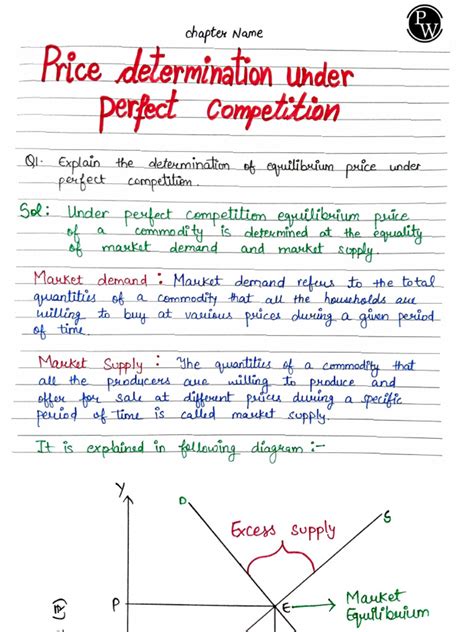 chapter Name
P
W
Price determination under
perfect competition
Q1. Explain the determination of equilibrium price under
perfect competition.
Sol: Under perfect competition equilibrium price
of a commodity is determined at the equality
of market demand and market supply.
Market demand : Market demand refers to the total
quantities of a commodity that all the households are
willing to buy at various prices during a given period
of time.
Market Supply : The quantities of a commodity that
all the producers are willing to produce and
offer for sale at different prices during a specific
period of time is called market supply.
It is explained in following diagram :-
Y
D
S
Excess supply
P
E
Market
Equilibrium